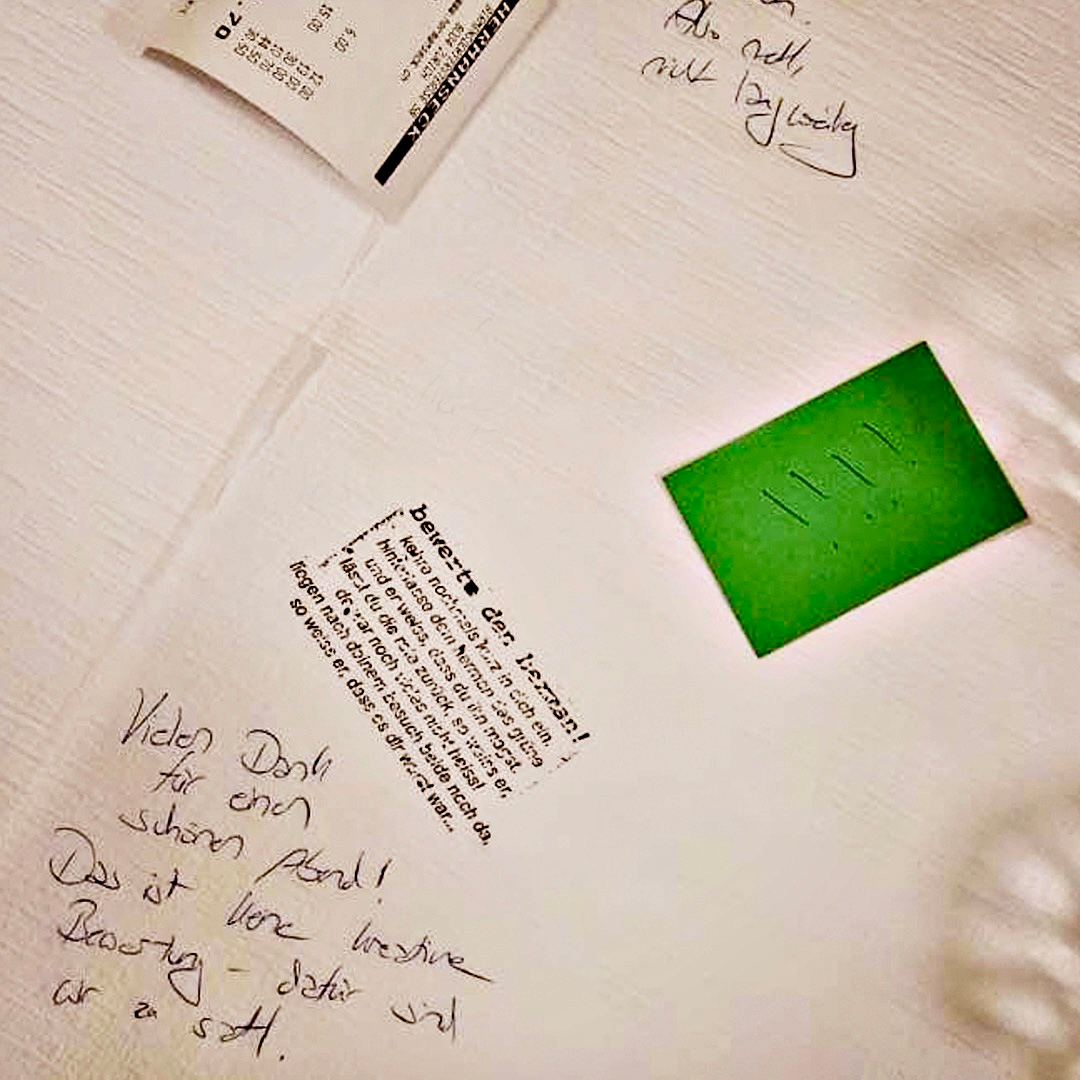 HERMANSECK
8001 ZÜRICH
6.00
15.00
.70
Also satt,
nicht langweilig
bewerte den herman!
kehre nochmals kurz in dich ein.
hinterlasse dem herman das grüne
und er weiss, dass du ihn magst.
lässt du die rote zurück, so weiss er,
da war noch vieles nicht heiss!
liegen nach deinem besuch beide noch da,
so weiss er, dass es dir wurst war...
Vielen Dank
für einen
schönen Abend!
Das ist keine kreative
Bewertung - dafür sind
wir zu satt.